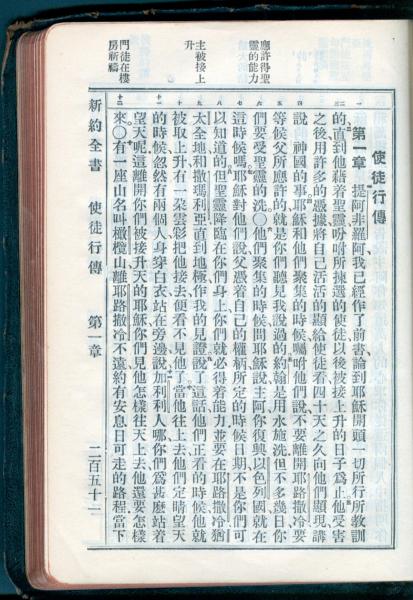 應許得聖
靈的能力
主被接上
升
門徒在樓
房祈禱
一
二三
四
五
六
七
八
九
十
十一
十二
使徒行傳
第一章 提阿非羅阿我已經作了前書論到耶穌開頭一切所行所教訓
的、直到他藉着聖靈吩咐所揀選的使徒以後被接上升的日子爲止他受害
之後用許多的憑據將自己活活的顯給使徒看四十天之久向他們顯現講
說　神國的事耶穌和他們聚集的時候囑咐他們說不要離開耶路撒冷要
等候父所應許的就是你們聽見我說過的約翰是用水施洗但不多幾日你
們要受聖靈的洗〇他們聚集的時候問耶穌說主阿你復興以色列國就在
這時候嗎耶穌對他們說父憑着自己的權柄所定的時候日期不是你們可
以知道的但聖靈降臨在你們身上你們就必得着能力並要在耶路撒冷猶
太全地和撒瑪利亞直到地極作我的見證說了這話他們正看的時候他就
被取上升有一朵雲彩把他接去便看不見他了當他往上去他們定睛望天
的時候忽然有兩個人身穿白衣站在旁邊說加利利人哪你們爲甚麼站着
望天呢這離開你們被接升天的耶穌你們見他怎樣往天上去他還要怎樣
來〇有一座山名叫橄欖山離耶路撒冷不遠約有安息日可走的路程當下
新約全書　使徒行傳　第一章　二百五十二